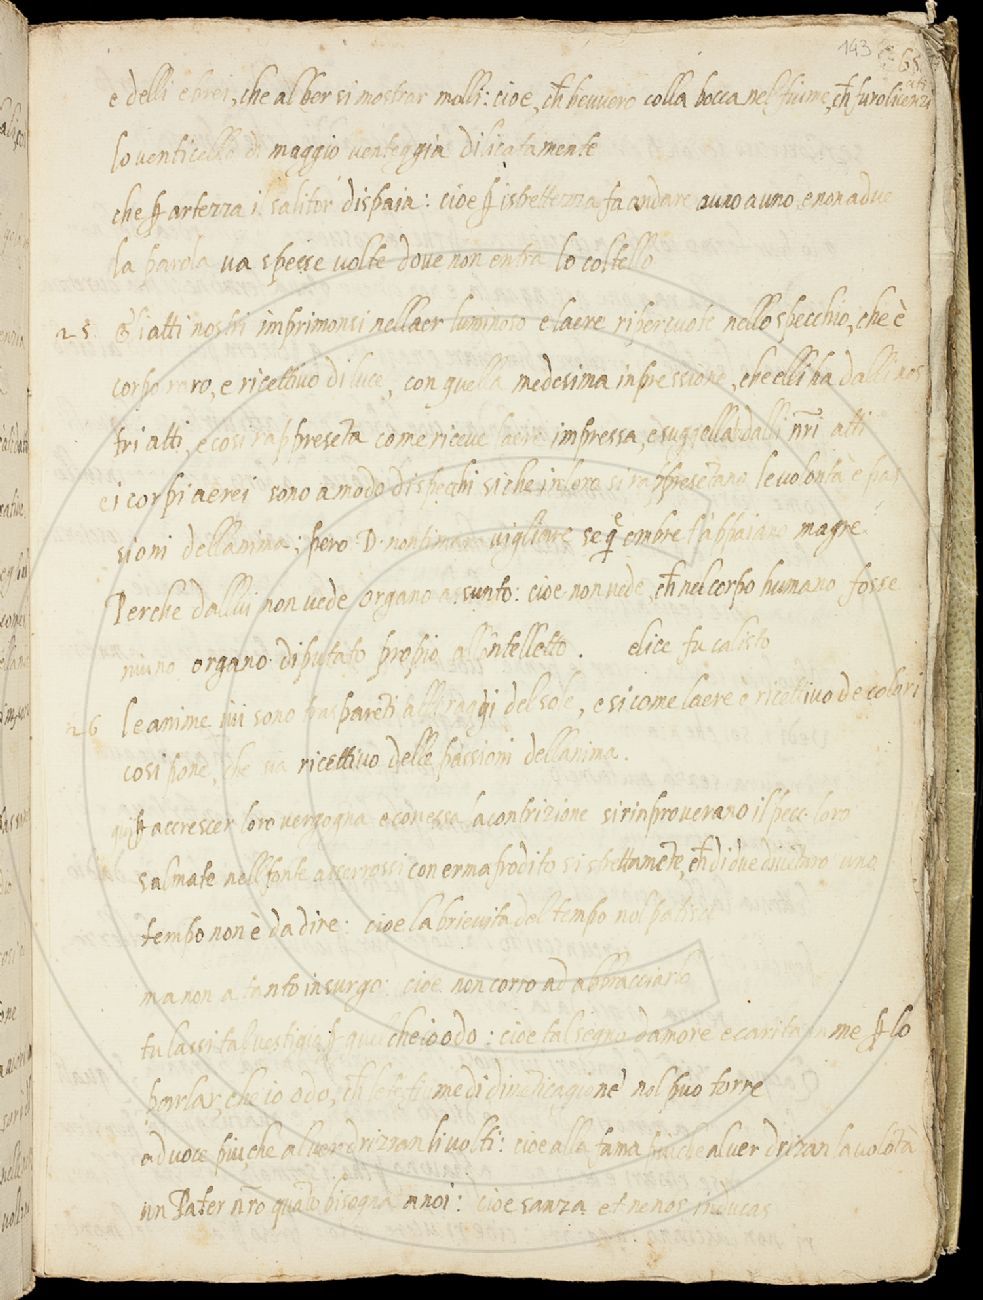 143
65
e delli ebrei, che al ber si mostrar molli: cioe, ch̃ bevvero colla bocca nel fiume, ch̃ furo licenzi
ati
lo venticello di maggio venteggia dilicatamente
che ꝑ artezza i salitor dispaia: cioe ꝑ istrettezza fa andare a uno a uno e non a due
la parola va spesse volte dove non entra lo coltello
25. Gli atti nostri imprimonsi nellaer luminoso e laere ripercuote nello specchio, che è
corpo raro, e ricettivo di luce, con quella medesima inpressione, che elli ha dalli nos
tri atti, e cosi rappreseta come riceve laere impressa, e suggellata dalli nr̃i atti
e i corpi aerei sono a modo di specchi si che in loro si rappresetano le volontà e pas
sioni dellanima, pero D. non ti maravigliare se q̃ ombre tappaiano magre
Perche dallui non vede organo assunto: cioe non vede, ch̃ nel corpo humano fosse
niuno organo diputato propio allintelletto. elice fu calisto
26 le anime ivi sono traspareti alli raggi del sole, e si come laere è ricettivo de colori
cosi pone, che sia ricettivo delle passioni dellanima.
qui ꝑ accrescer loro vergogna e con essa la contrizione si rinproverano il pecc. loro
salmate nell fonte accerrossi con ermafrodito si strettamete, ch̃ di due diventaro uno
tempo non è da dire: cioe la brievita del tempo nol patisce
ma non a tanto insurgo: cioe non corro ad abbracciarlo
tu lassi tal vestigio ꝑ quel che io odo: cioe tal segno damore e carita in me ꝑ lo
parlar, che io odo, ch̃ lete fiume di dimenticagione nol puo torre
ad voce piu, che al ver drizzan li volti: cioe alla fama piu che al ver drizan la volotà
un Pater nr̃o quato bisogna a noi: cioe sanza et ne nos inducas